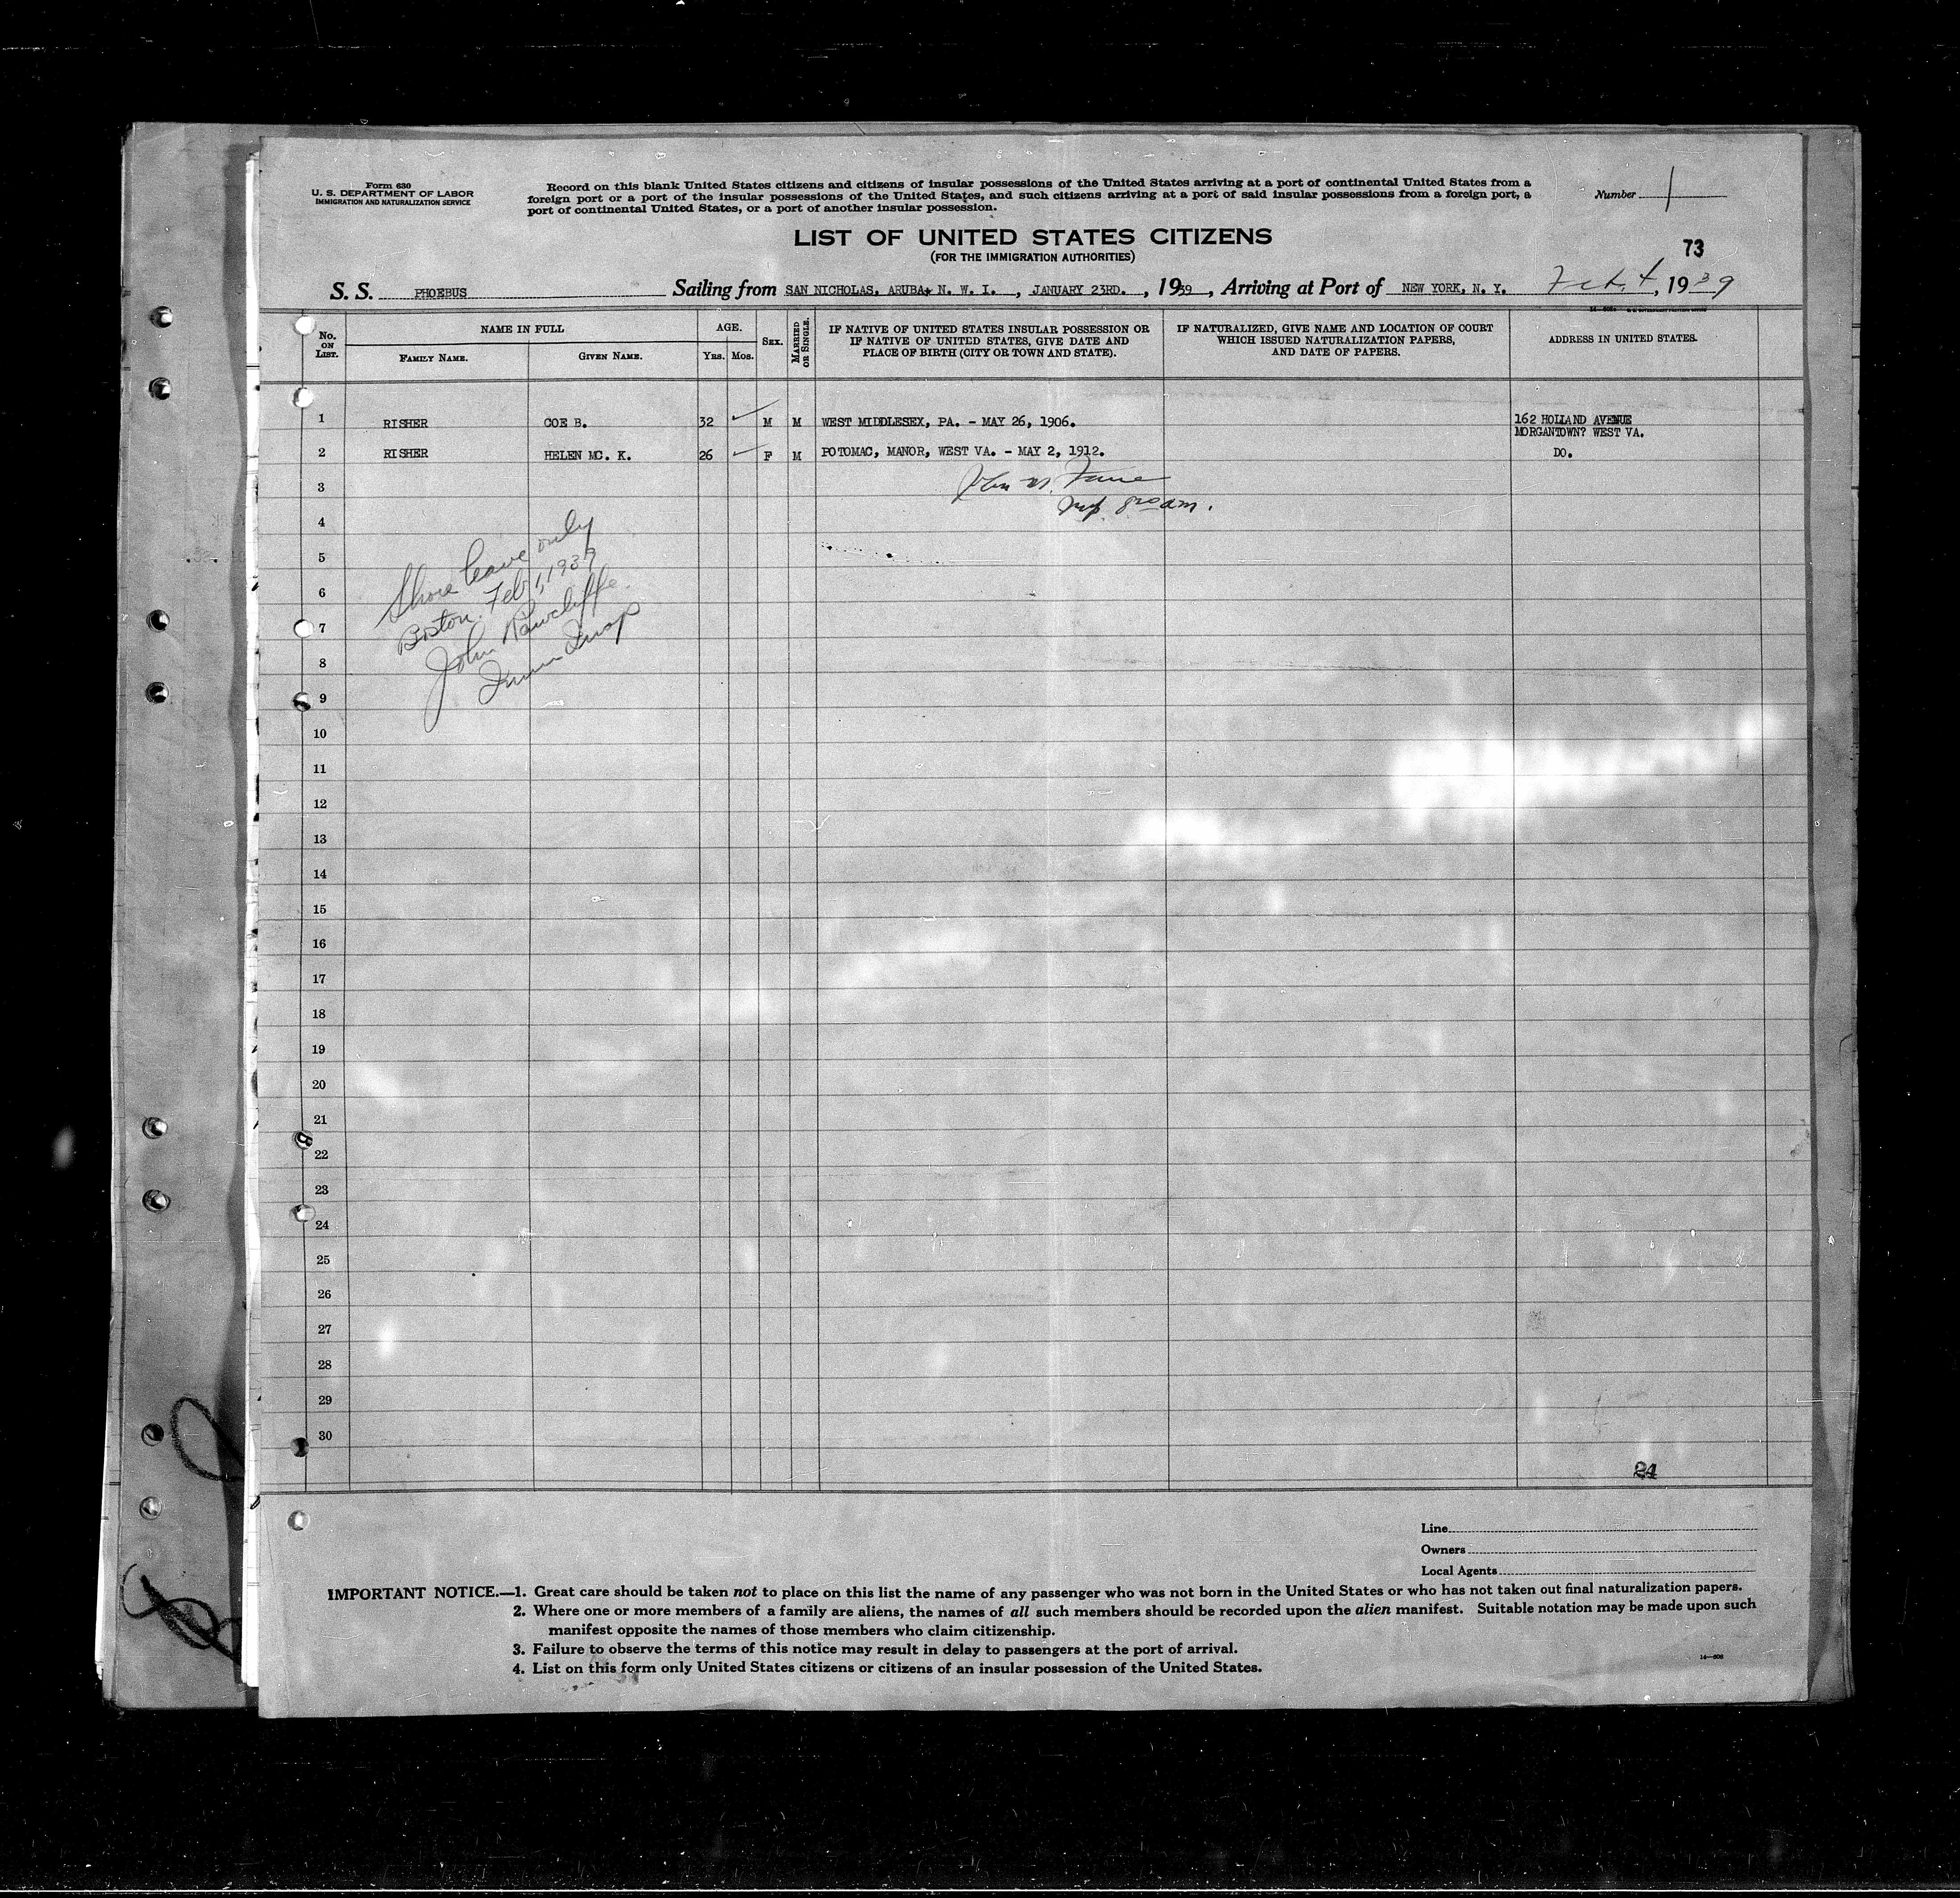 Form 630
U. S. DEPARTMENT OF LABOR
IMMIGRATION AND NATURALIZATION SERVICE
Record on this blank United States citizens and citizens of insular possessions of the United States arriving at a port of continental United States from a
foreign port or a port of the insular possessions of the United States, and such citizens arriving at a port of said insular possessions from a foreign port, a
port of continental United States, or a port of another insular possession.
Number 1
LIST OF UNITED STATES CITIZENS
(FOR THE IMMIGRATION AUTHORITIES)
73
S. S. PHOEBUS Sailing from SAN NICHOLAS, ARUBA, N. W. I. , JANUARY 23RD. , 1939 , Arriving at Port of NEW YORK, N. Y. Feb. 4, 1939
No. ON LIST.
NAME IN FULL
FAMILY NAME.
GIVEN NAME.
AGE.
Yrs. Mos.
SEX.
MARRIED OR SINGLE.
IF NATIVE OF UNITED STATES INSULAR POSSESSION OR
IF NATIVE OF UNITED STATES, GIVE DATE AND
PLACE OF BIRTH (CITY OR TOWN AND STATE).
IF NATURALIZED, GIVE NAME AND LOCATION OF COURT
WHICH ISSUED NATURALIZATION PAPERS,
AND DATE OF PAPERS.
ADDRESS IN UNITED STATES.
1 RISHER COE B. 32 M M WEST MIDDLESEX, PA. - MAY 26, 1906. 162 HOLLAND AVENUE
MORGANTOWN? WEST VA.
2 RISHER HELEN MC. K. 26 F M POTOMAC, MANOR, WEST VA. - MAY 2, 1912. DO.
3
4
5
6
7
8
9
10
11
12
13
14
15
16
17
18
19
20
21
22
23
24
25
26
27
28
29
30
Shore leave only
Boston. Feb 1, 1939
John Rawcliffe.
Imm Insp
24
Line
Owners
Local Agents
IMPORTANT NOTICE.—1. Great care should be taken not to place on this list the name of any passenger who was not born in the United States or who has not taken out final naturalization papers.
2. Where one or more members of a family are aliens, the names of all such members should be recorded upon the alien manifest. Suitable notation may be made upon such
manifest opposite the names of those members who claim citizenship.
3. Failure to observe the terms of this notice may result in delay to passengers at the port of arrival.
4. List on this form only United States citizens or citizens of an insular possession of the United States.
14—608